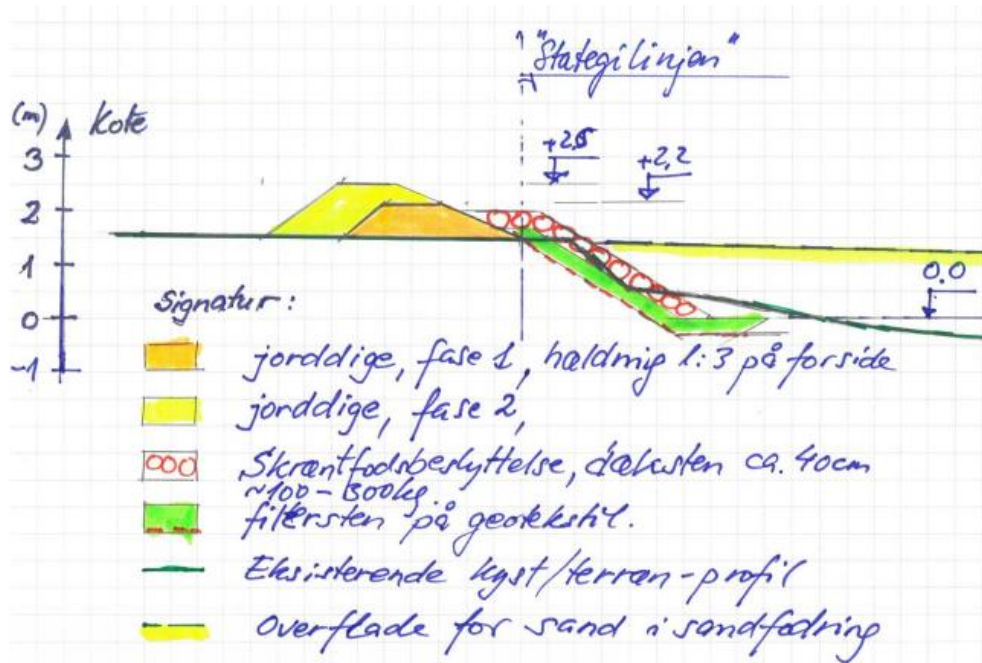 "Stategilinjen"
(m) Kote
+2,5
+2,2
3
2
1
0,0
0
-1
Signatur:
jorddige, fase 1, hældnig 1:3 på forside
jorddige, fase 2,
Skræntfodsbeskyttelse, dæksten ca. 40cm
~100-300kg.
filtersten på geotekstil.
Eksisterende kyst/terræn-profil
Overflade for sand i sandfodring